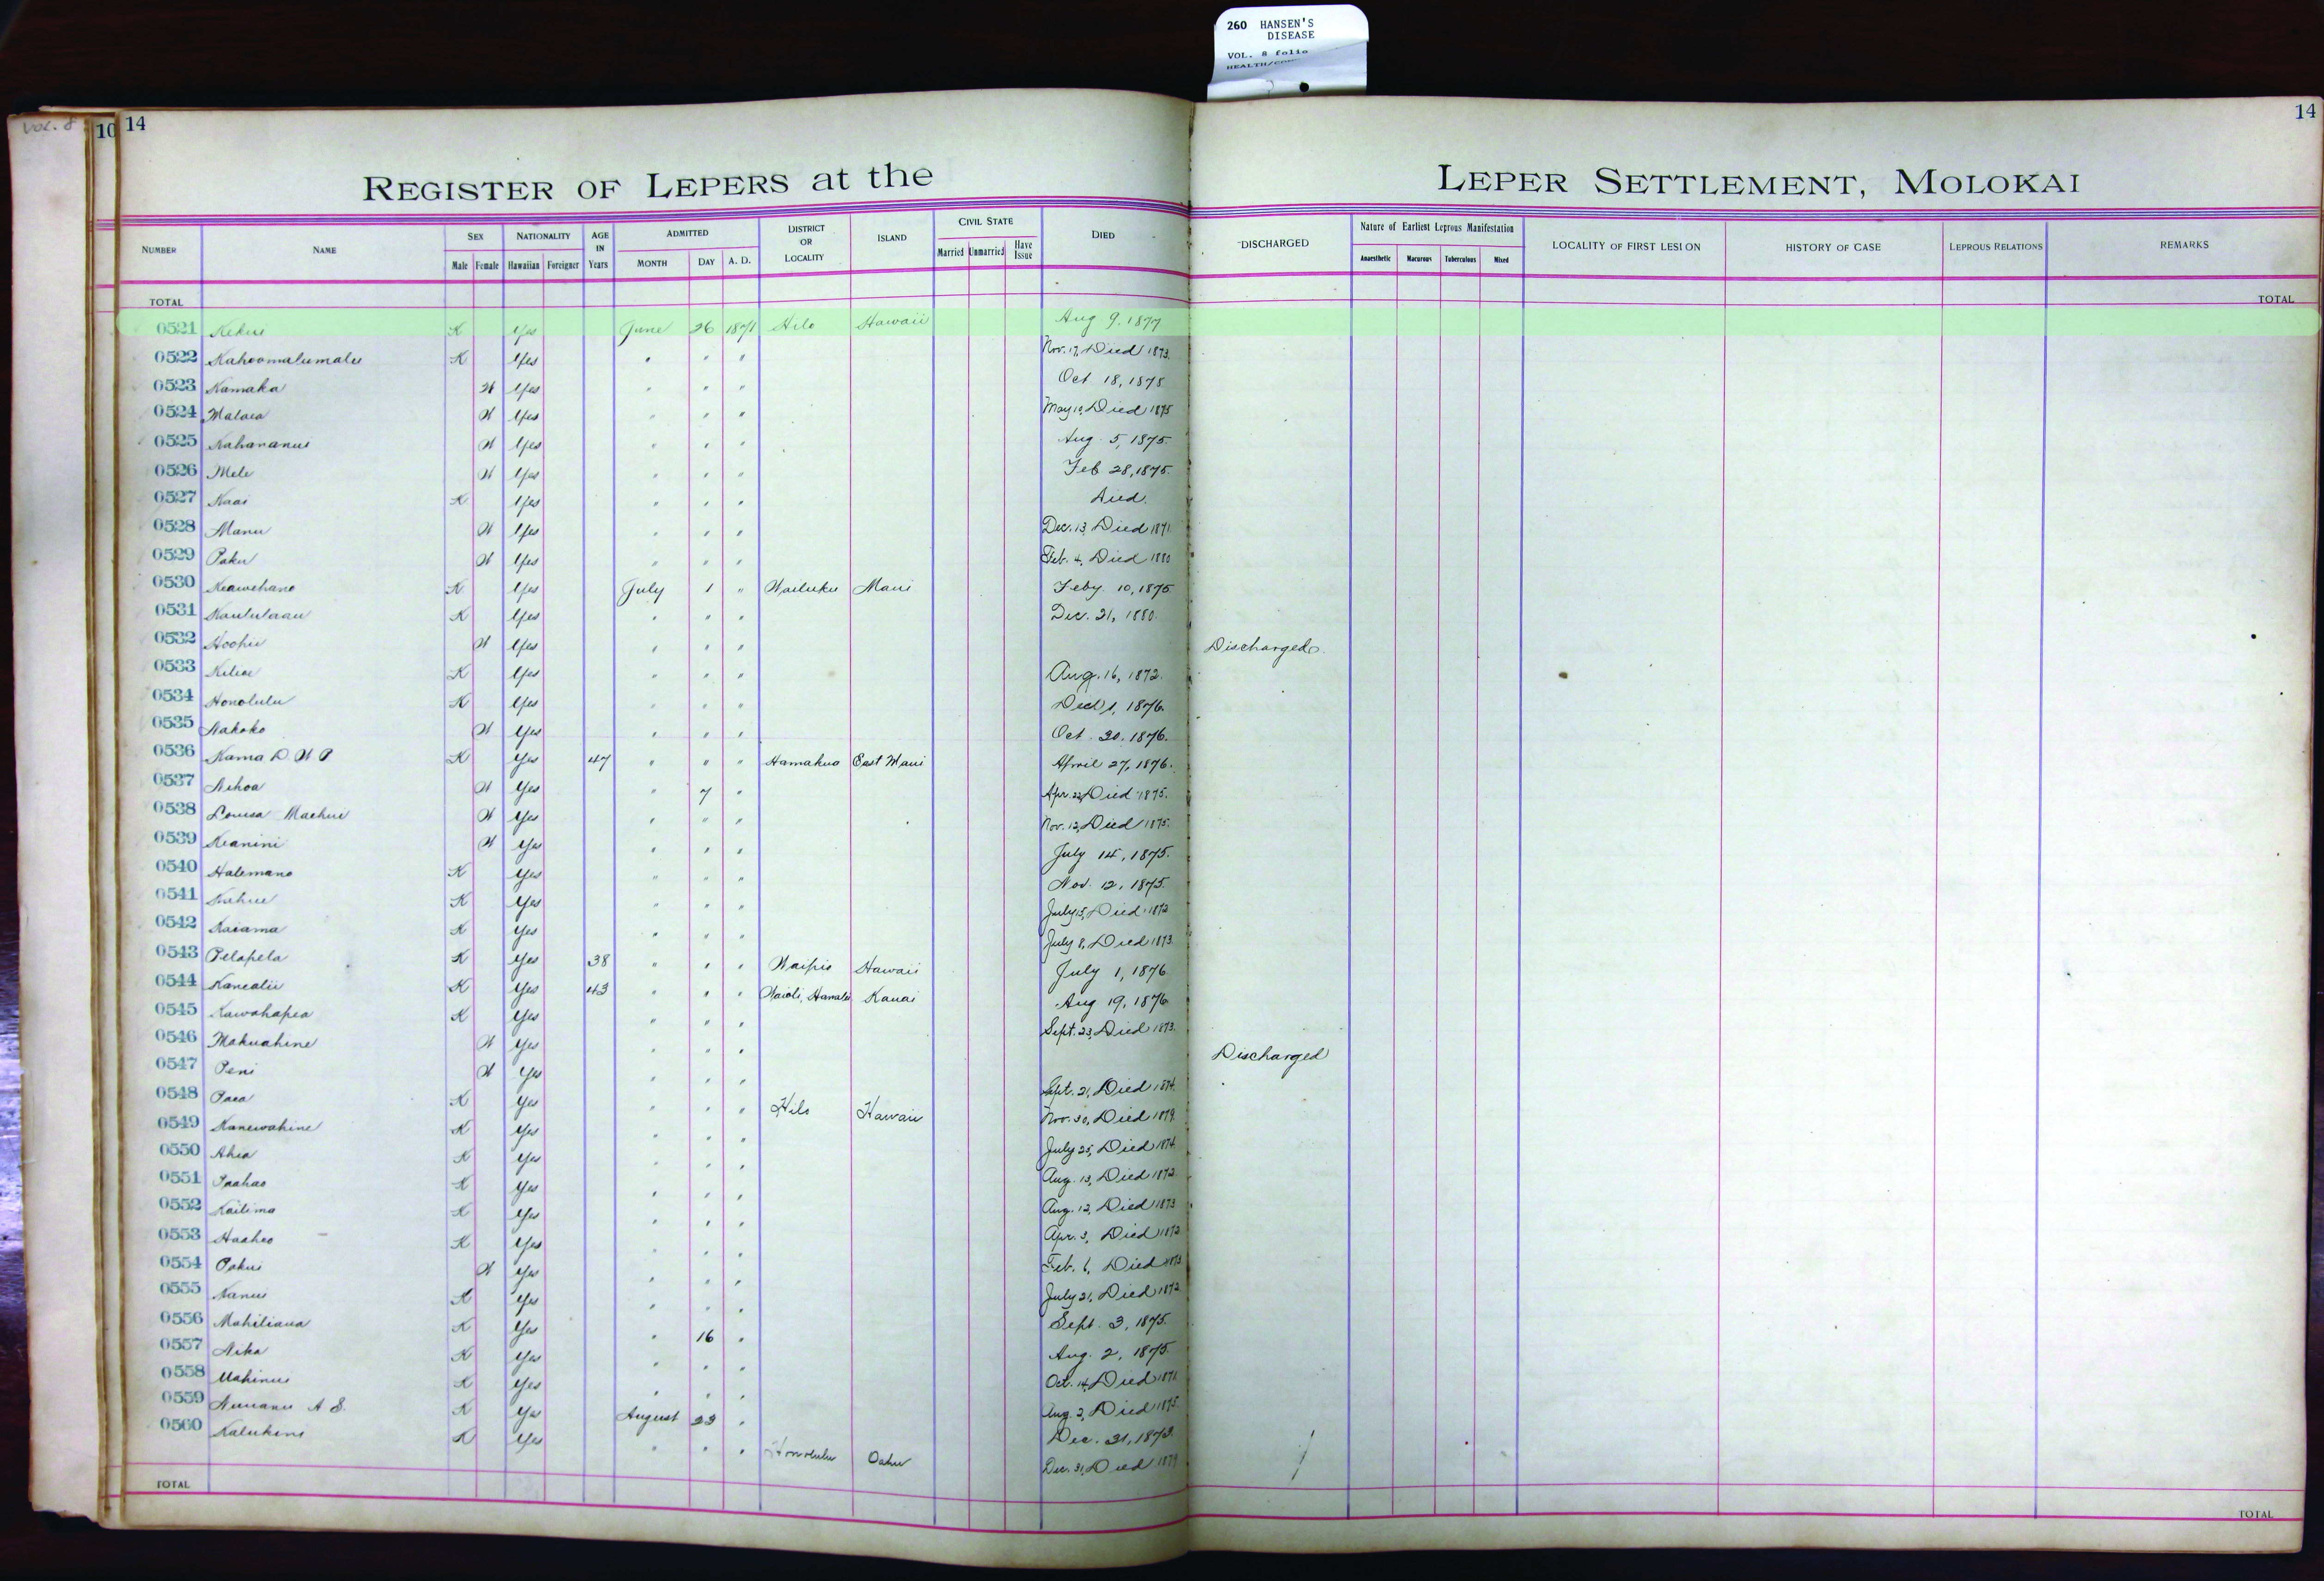 260 HANSEN'S
DISEASE
VOL. 8 folio
VOL. 8
10
14
14
REGISTER OF LEPERS at the LEPER SETTLEMENT, MOLOKAI
NUMBER NAME SEX Male Female NATIONALITY Hawaiian Foreigner AGE IN Years ADMITTED MONTH DAY A. D. DISTRICT OR LOCALITY ISLAND CIVIL STATE Married Unmarried Have Issue DIED DISCHARGED Nature of Earliest Leprous Manifestation Anaesthetic Macurous Tuberculous Mixed LOCALITY OF FIRST LESION HISTORY OF CASE LEPROUS RELATIONS REMARKS
TOTAL TOTAL
0521 Kekui K Yes June 26 1871 Hilo Hawaii Aug 9, 1877
0522 Kahoomalumalu K Yes " " " Nov. 17, Died 1873.
0523 Kamaka W Yes " " " Oct 18, 1875
0524 Malaea W Yes " " " May 10, Died 1875
0525 Kahananui W Yes " " " Aug. 5, 1875.
0526 Mele W Yes " " " Feb 28, 1875.
0527 Kaai K Yes " " " Died.
0528 Manu W Yes " " " Dec. 13, Died 1871
0529 Paku W Yes " " " Feb. 4, Died 1880
0530 Keawehano K Yes July 1 " Wailuku Maui Feby 10, 1875
0531 Kaululaau K Yes " " " Dec. 21, 1880.
0532 Hoohii W Yes " " " Discharged.
0533 Kiliae K Yes " " " Aug. 16, 1872.
0534 Honolulu K Yes " " " 1, 1876.
0535 Nakoko W Yes " " " Oct. 20, 1876.
0536 Kama D W P K Yes 47 " " " Hamakua East Maui April 27, 1876.
0537 Nihoa W Yes " 7 " Apr. 22, Died 1875.
0538 Louisa Maehui W Yes " " " Nov. 12, Died 1875.
0539 Keanini W Yes " " " July 14, 1875.
0540 Halemano K Yes " " " Nov. 12, 1875.
0541 Kahue K Yes " " " July 15, Died 1872
0542 Kaiama K Yes " " " July 8, Died 1873.
0543 Pelapela K Yes 38 " " " Waipio Hawaii July 1, 1876
0544 Kanealii K Yes 43 " " " Waioli, Hanalei Kauai Aug 19, 1876
0545 Kawahapea K Yes " " " Sept. 23, Died 1873.
0546 Makuahine W Yes " " " Discharged
0547 Peni W Yes " " " Sept. 21, Died 1874.
0548 Paea K Yes " " " Hilo Hawaii Nov. 30, Died 1879.
0549 Kanewahine K Yes " " " July 25, Died 1874.
0550 Ahia K Yes " " " Aug. 13, Died 1872.
0551 Paahao K Yes " " " Aug. 12, Died 1873
0552 Kailima K Yes " " " Apr. 3, Died 1872
0553 Haaheo K Yes " " " Feb. 6, Died 1873
0554 Pakui W Yes " " " July 21, Died 1872
0555 Nanui K Yes " " " Sept. 3, 1875.
0556 Mahiliaua K Yes " 16 " Aug. 2, 1875.
0557 Nika K Yes " " " Oct. 14, Died 1871.
0558 Mahinui K Yes " " " Aug. 2, Died 1875.
0559 Nuuanu A S. K Yes August 23 " Dec. 31, 1873.
0560 Kalukini K Yes " " " Honolulu Oahu Dec. 31, Died 1879
TOTAL TOTAL